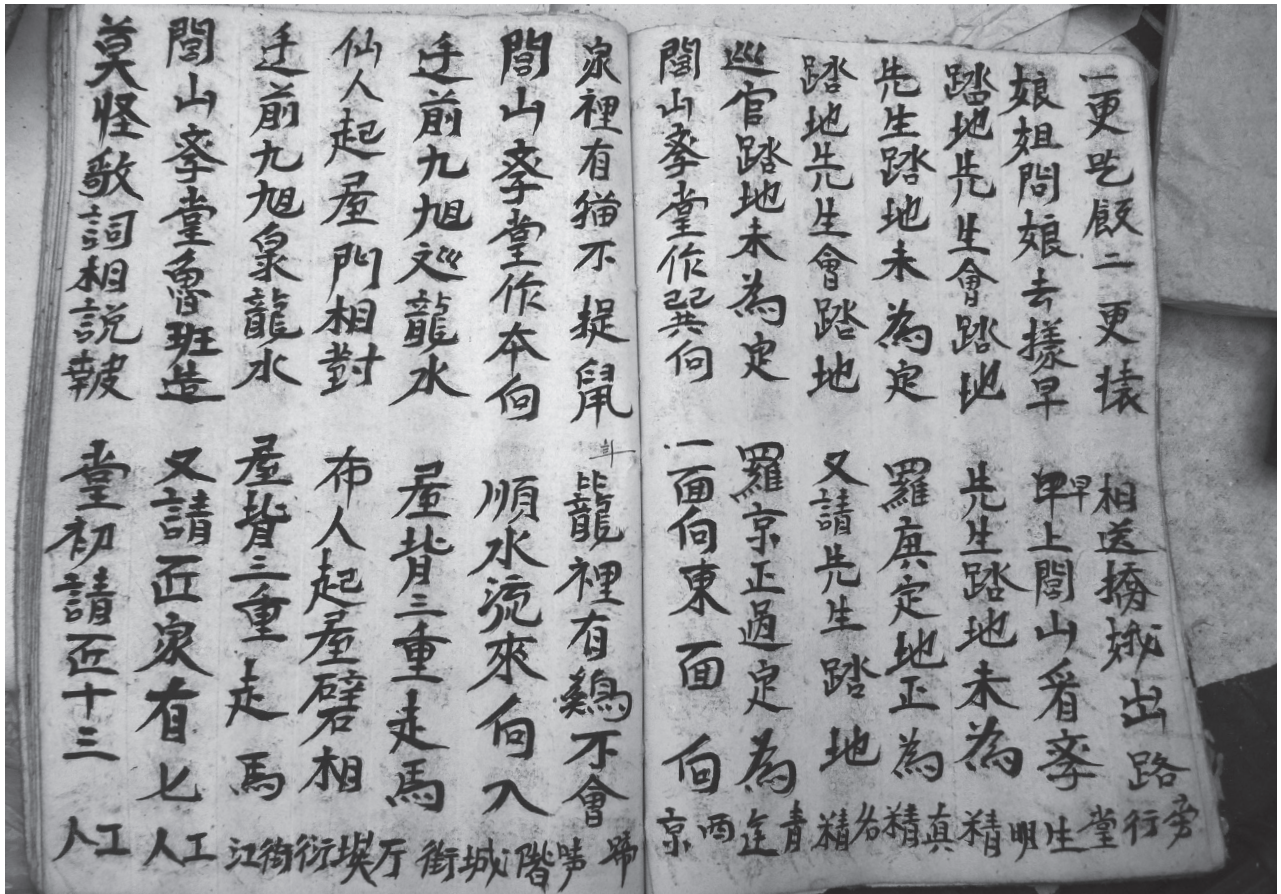 一更吃飯二更猿 相送撟娥出路行旁
娘姐問娘去樣早 早上閭山看斈堂
踏地先生會踏地 先生踏地未為明生
先生踏地未為定 羅庚定地正為真精
踏地先生會踏地 又請先生踏地精名
巡官踏地未為定 羅京正過定為途青
閭山斈堂作巽向 一面向東面向京西
泉裡有猫不捉鼠 籠裡有鷄不會啼
閭山斈堂作本向 順水流來向入城階
迁前九旭巡龍水 屋背三重走馬街厅
仙人起屋門相對 布人起屋壁相衍埃
迁前九旭泉龍水 屋背三重走馬江街
閭山斈堂魯班造 又請匠家有七人工
莫怪歌詞相説皷 堂初請匠十三人工